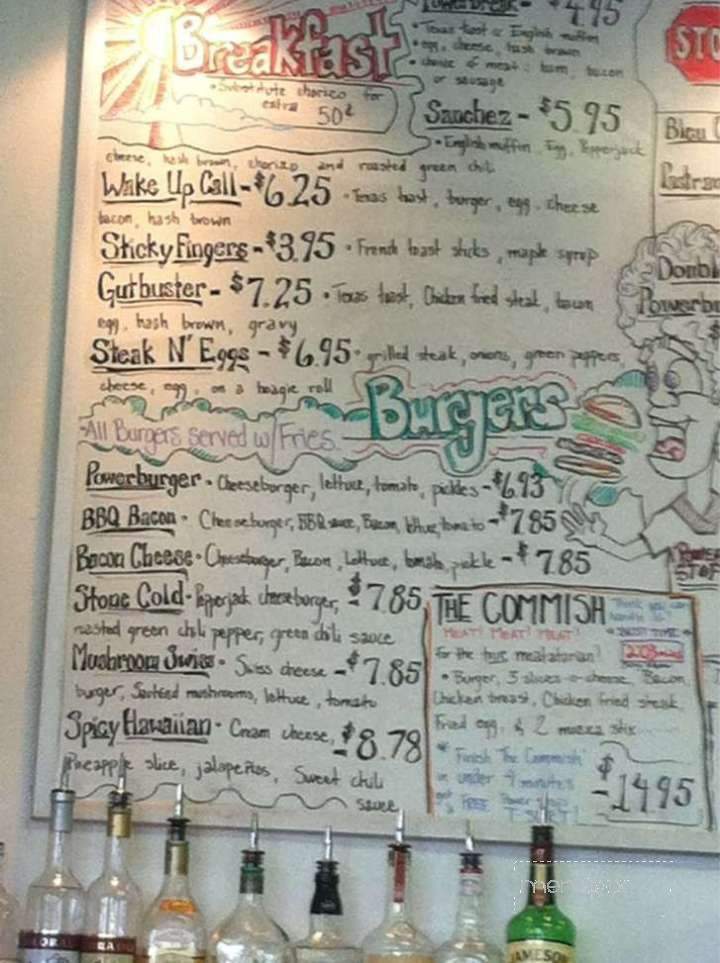 Breakfast
•Substitute chorizo for
extra 50¢
$4.95
•Texas toast or English muffin
•egg, cheese, hash brown
•choice of meat: ham, bacon
or sausage
Sanchez - $5.95
•English muffin, Egg, Pepperjack
cheese, hash brown, chorizo and roasted green chili
Wake Up Call - $6.25 •Texas toast, burger, egg, cheese
bacon, hash brown
Sticky Fingers - $3.95 •French toast sticks, maple syrup
Gutbuster - $7.25 •Texas toast, Chicken fried steak, bacon
egg, hash brown, gravy
Steak N' Eggs - $6.95 •grilled steak, onions, green peppers,
cheese, egg, on a hoagie roll
Burgers
•All Burgers served w/ Fries.
Powerburger • Cheeseburger, lettuce, tomato, pickles - $6.93
BBQ Bacon • Cheeseburger, BBQ sauce, Bacon, lettuce, tomato - $7.85
Bacon Cheese • Cheeseburger, Bacon, Lettuce, tomato, pickle - $7.85
Stone Cold • Pepperjack cheeseburger, - $7.85
roasted green chili pepper, green chili sauce
Mushroom Swiss • Swiss cheese - $7.85
burger, Sauteed mushrooms, lettuce, tomato
Spicy Hawaiian • Cream cheese, - $8.78
Pineapple slice, jalapeños, Sweet chili
sauce
THE COMMISH
MEAT! MEAT! MEAT!
for the true meatatarian!
• Burger, 3 slices-o-cheese, Bacon,
Chicken breast, Chicken fried steak,
Fried egg, & 2 mozza stix
* Finish 'The Commish'
in under 9 minutes
get a FREE
T-SHIRT!
$14.95
STO
Bleu
Doubl
Powerbu
JAMESON